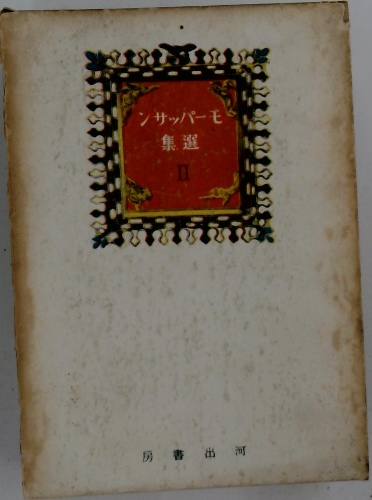 モーパッサン
選集
II
河出書房